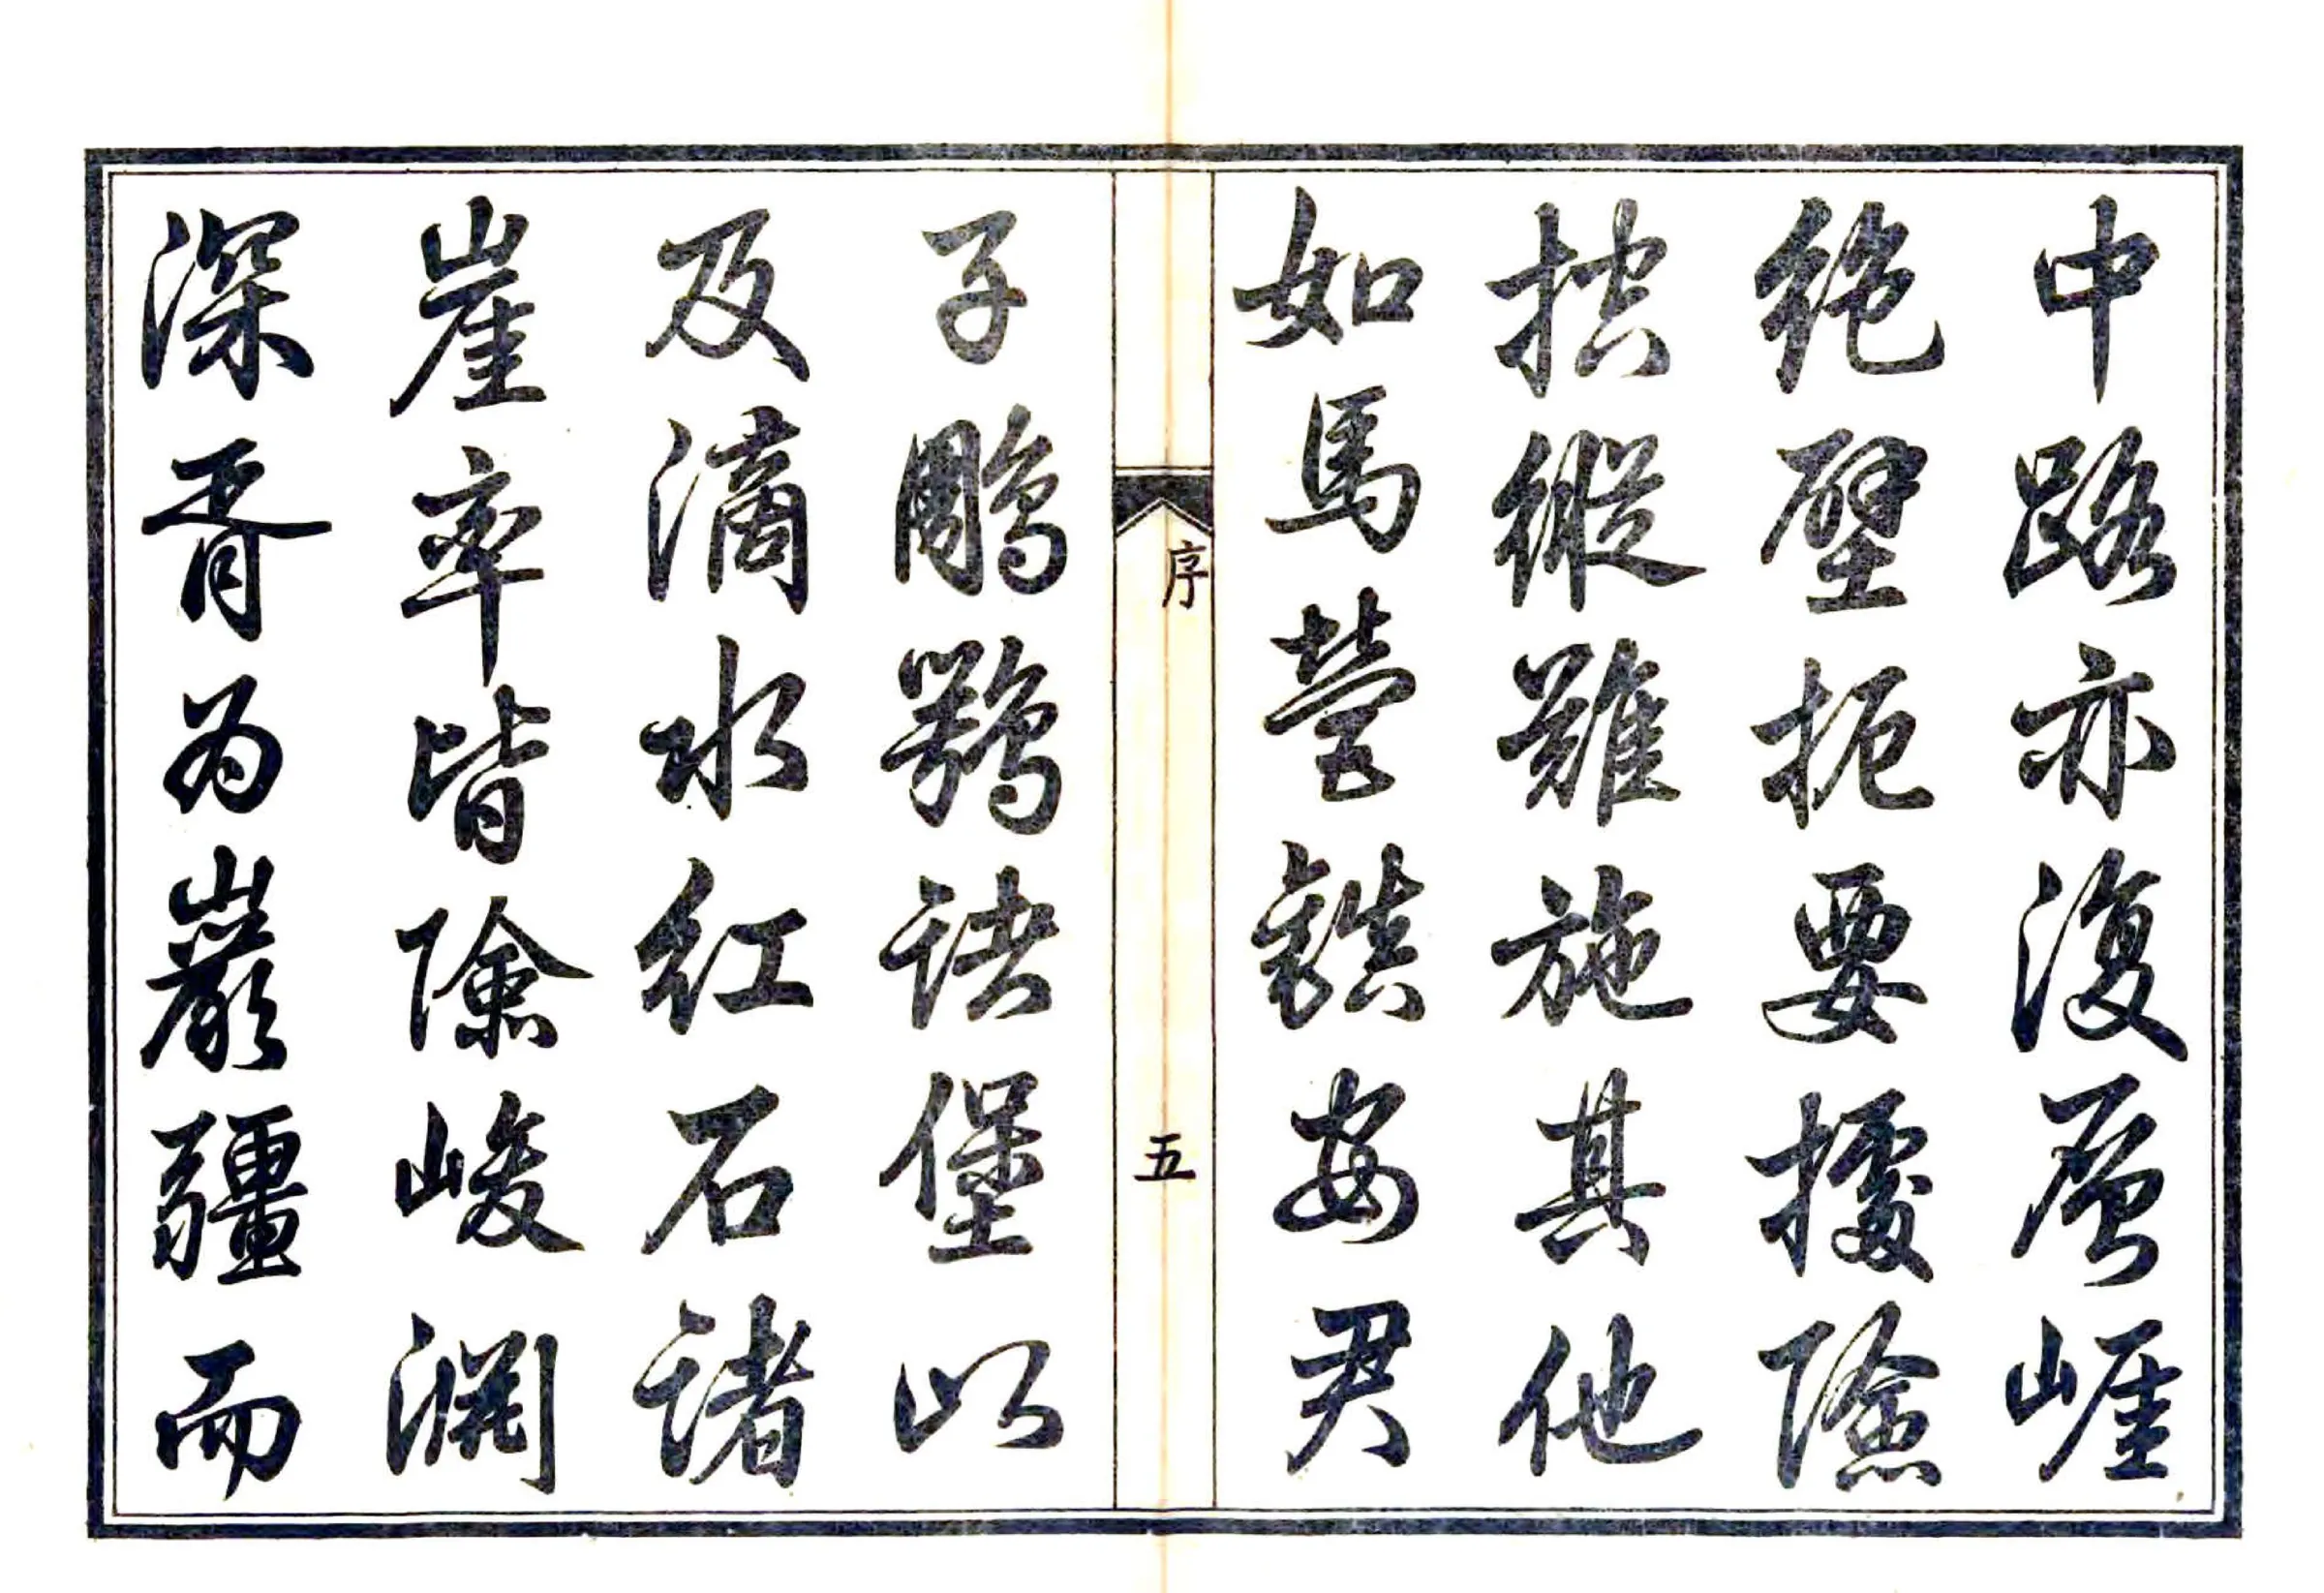 中路亦復層崕
絶壁扼要據險
控縱難施其他
如馬營鎮安君
子鵰鶚諸堡以
及滴水紅石諸
崖率皆險峻淵
深胥為巖疆而
序
五